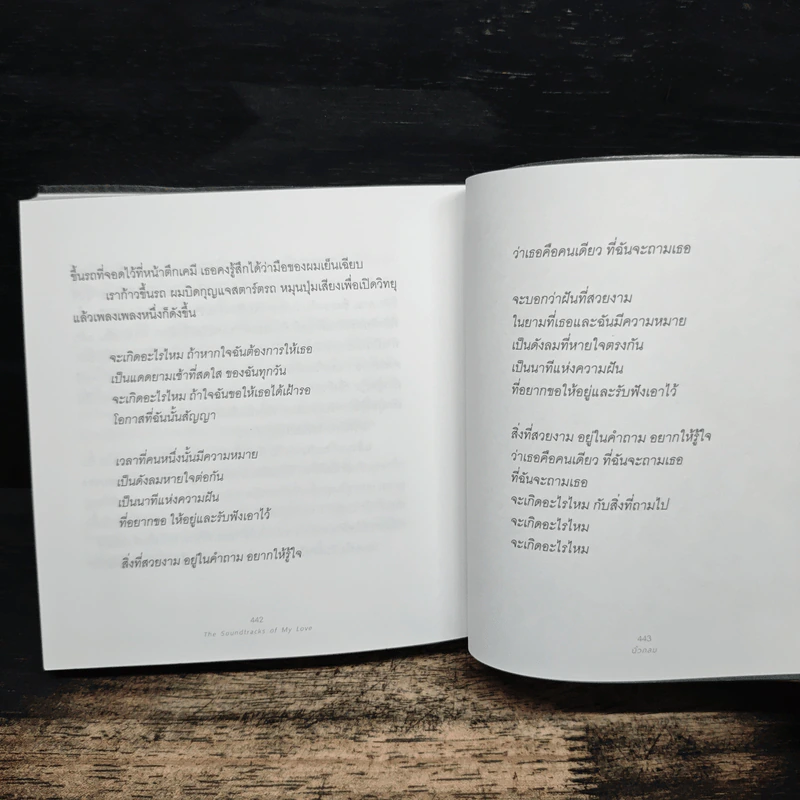 ขึ้นรถที่จอดไว้ที่หน้าตึกเคมี เธอคงรู้สึกได้ว่ามือของผมเย็นเฉียบ
เราก้าวขึ้นรถ ผมบิดกุญแจสตาร์ตรถ หมุนปุ่มเสียงเพื่อเปิดวิทยุ
แล้วเพลงเพลงหนึ่งก็ดังขึ้น
จะเกิดอะไรไหม ถ้าหากใจฉันต้องการให้เธอ
เป็นแดดยามเช้าที่สดใส ของฉันทุกวัน
จะเกิดอะไรไหม ถ้าใจฉันขอให้เธอได้เฝ้ารอ
โอกาสที่ฉันนั้นสัญญา
เวลาที่คนหนึ่งนั้นมีความหมาย
เป็นดังลมหายใจต่อกัน
เป็นนาทีแห่งความฝัน
ที่อยากขอ ให้อยู่และรับฟังเอาไว้
สิ่งที่สวยงาม อยู่ในคำถาม อยากให้รู้ใจ
442
The Soundtracks of My Love
ว่าเธอคือคนเดียว ที่ฉันจะถามเธอ
จะบอกว่าฝันที่สวยงาม
ในยามที่เธอและฉันมีความหมาย
เป็นดังลมที่หายใจตรงกัน
เป็นนาทีแห่งความฝัน
ที่อยากขอให้อยู่และรับฟังเอาไว้
สิ่งที่สวยงาม อยู่ในคำถาม อยากให้รู้ใจ
ว่าเธอคือคนเดียว ที่ฉันจะถามเธอ
ที่ฉันจะถามเธอ
จะเกิดอะไรไหม กับสิ่งที่ถามไป
จะเกิดอะไรไหม
จะเกิดอะไรไหม
443
นิ้วกลม